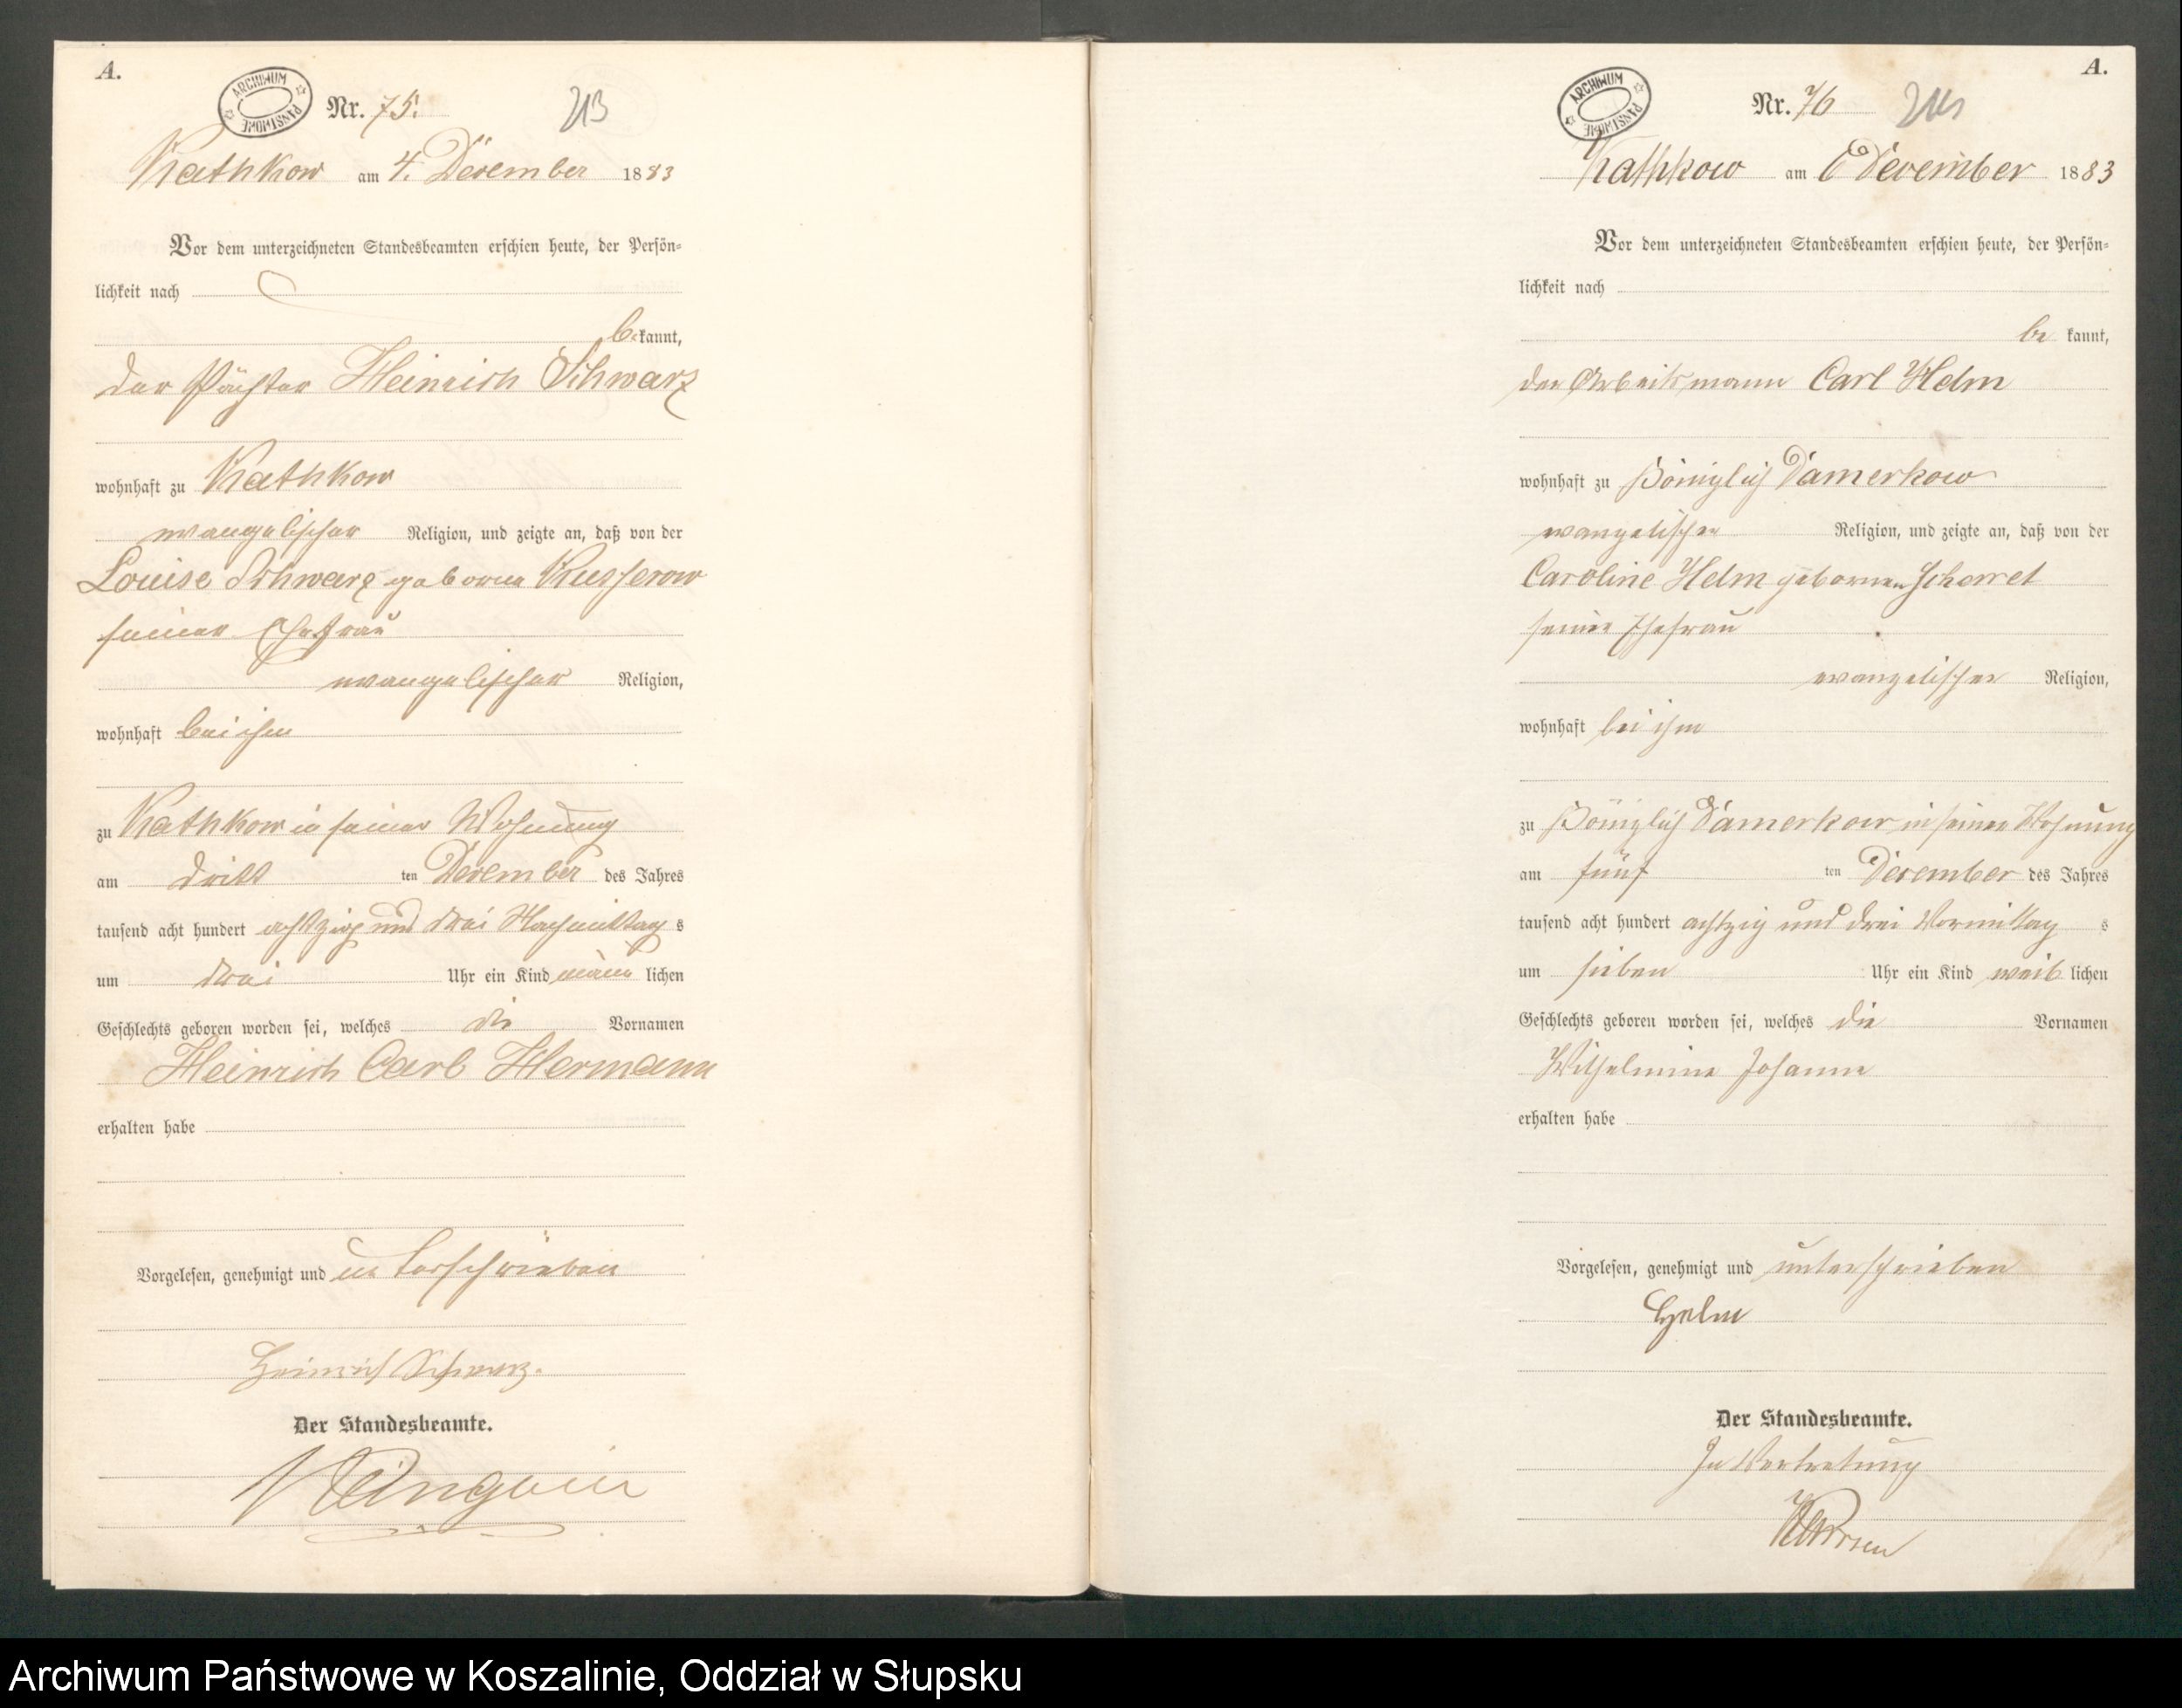 A.
ARCHIWUM PAŃSTWOWE
Nr. 75.
213
Kathkow am 4. December 1883
Vor dem unterzeichneten Standesbeamten erschien heute, der Persön-
lichkeit nach
bekannt,
der Pächter Heinrich Schwarz
wohnhaft zu Kathkow
evangelischer Religion, und zeigte an, daß von der
Louise Schwarz geborne Kusserow
seiner Ehefrau
evangelischer Religion,
wohnhaft bei ihm
zu Kathkow in seiner Wohnung
am dritt ten December des Jahres
tausend acht hundert achtzig und drei Nachmittags
um drei Uhr ein Kind männlichen
Geschlechts geboren worden sei, welches die Vornamen
Heinrich Carl Hermann
erhalten habe
Vorgelesen, genehmigt und unterschrieben
Heinrich Schwarz.
Der Standesbeamte.
A.
ARCHIWUM PAŃSTWOWE
Nr. 76
Kathkow am 6 December 1883
Vor dem unterzeichneten Standesbeamten erschien heute, der Persön-
lichkeit nach
bekannt,
der Arbeitsmann Carl Helm
wohnhaft zu Königlich Damerkow
evangelischer Religion, und zeigte an, daß von der
Caroline Helm gebornen
seiner Ehefrau
evangelischer Religion,
wohnhaft bei ihm
zu Königlich Damerkow in seiner Wohnung
am fünf ten December des Jahres
tausend acht hundert achtzig und drei Vormittags
um sieben Uhr ein Kind weiblichen
Geschlechts geboren worden sei, welches die Vornamen
Wilhelmine Johanne
erhalten habe
Vorgelesen, genehmigt und unterschrieben
Helm
Der Standesbeamte.
In Vertretung
Archiwum Państwowe w Koszalinie, Oddział w Słupsku